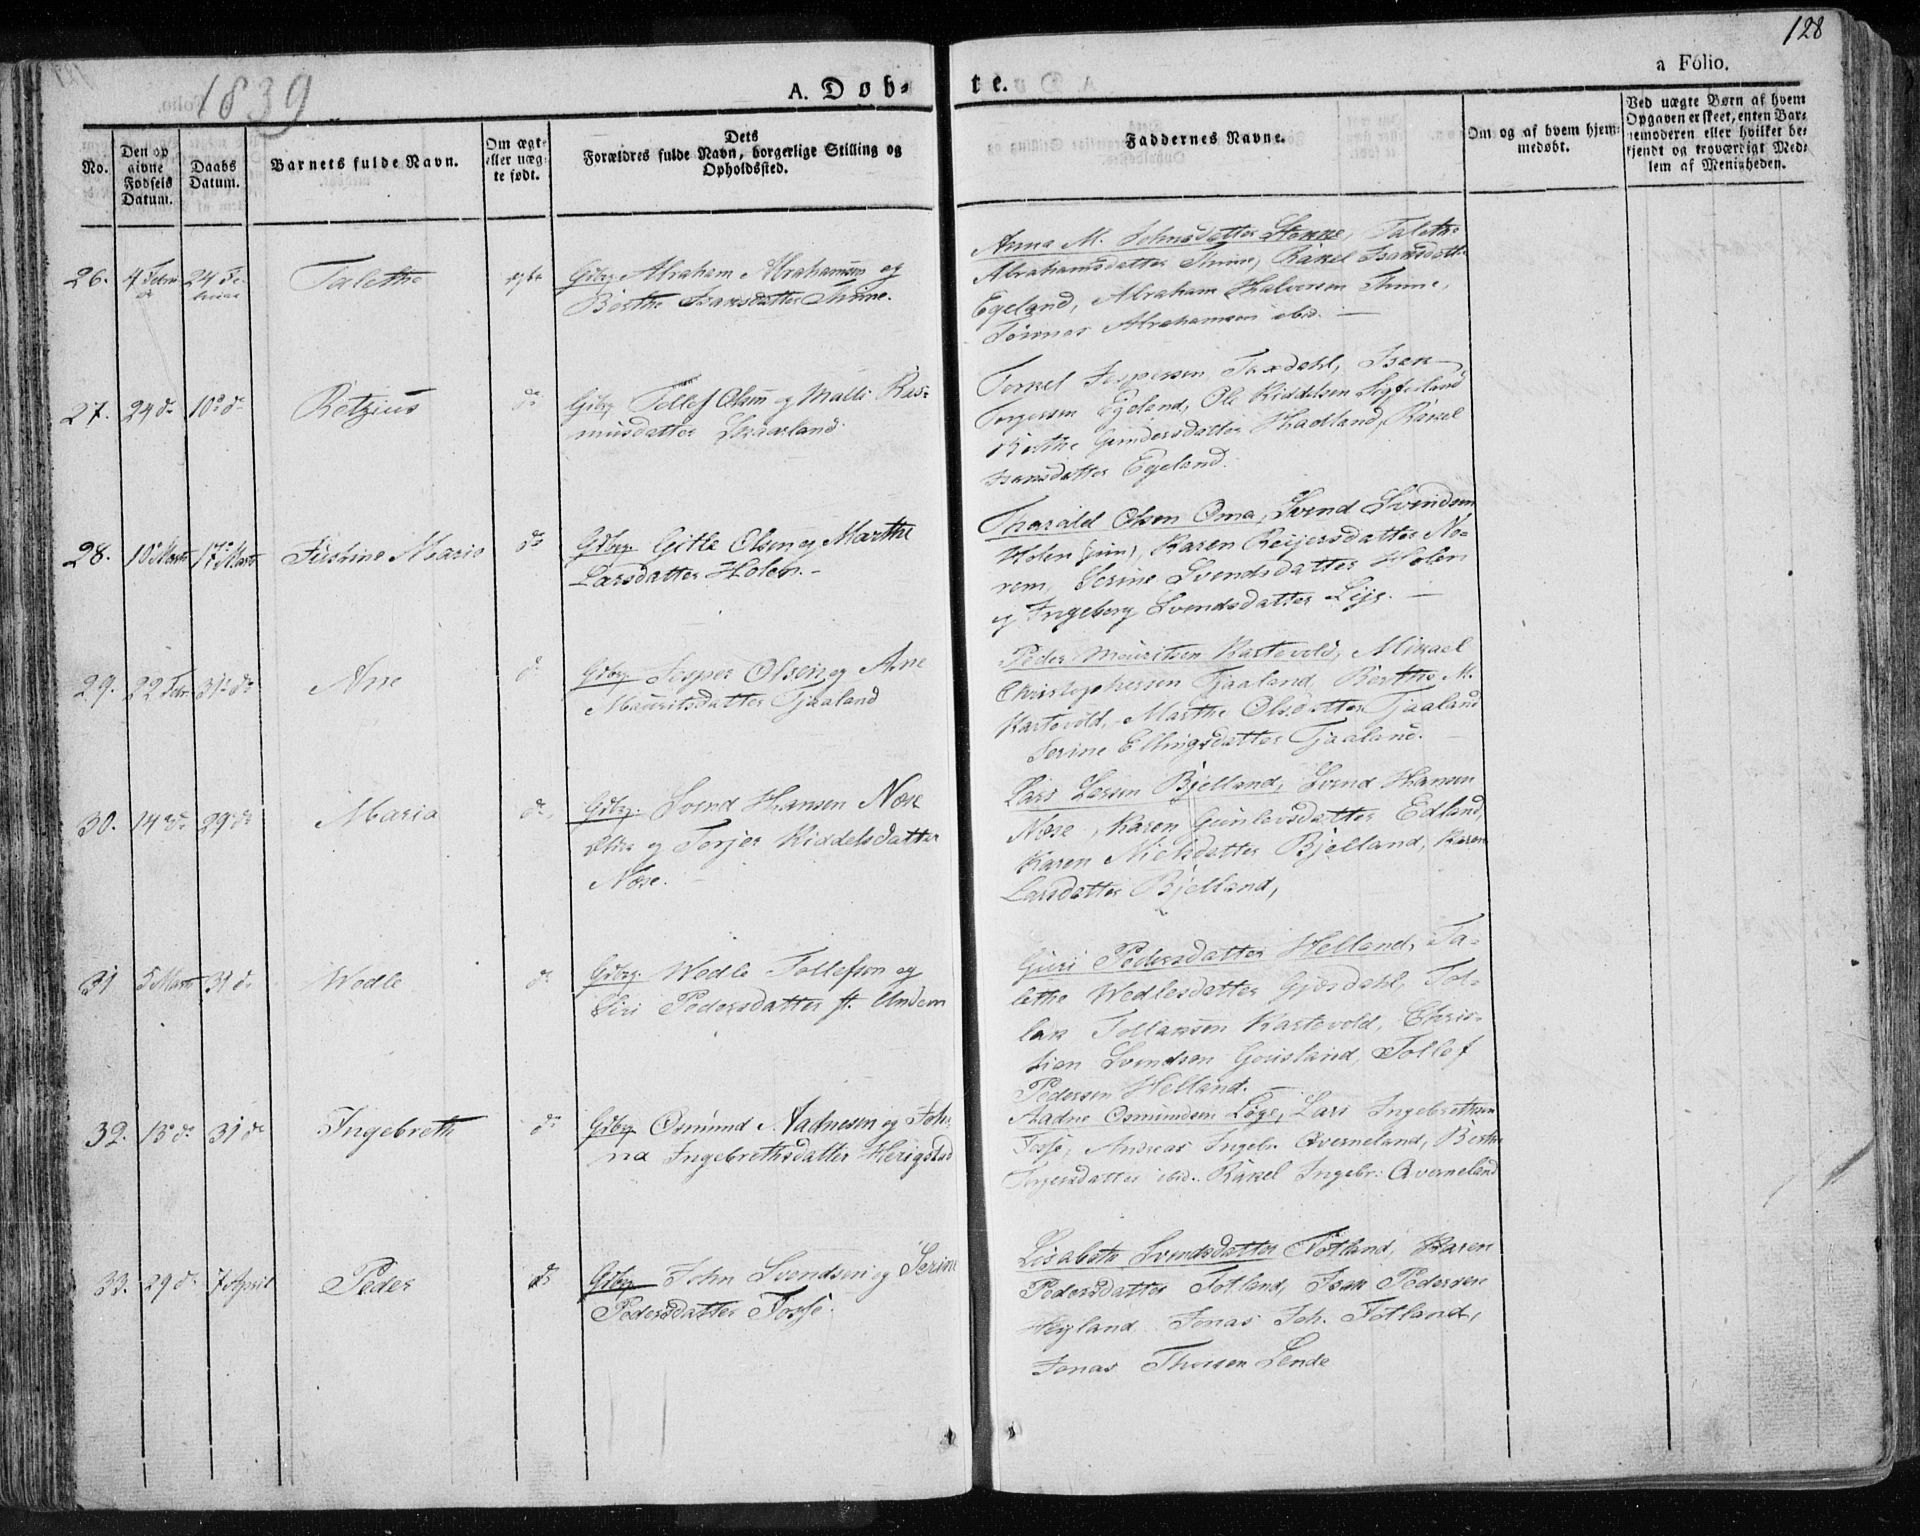 128
a Folio.
1839
A. Døb-
te.
No.
Den op
givne
Fødsels
Datum.
Daabs
Datum.
Barnets fulde Navn.
Om ægte
eller uæg-
te født.
Dets
Forældres fulde Navn, borgerlige Stilling og
Opholdssted.
Faddernes Navne.
Om og af hvem hjem-
medøbt.
Ved uægte Børn af hvem
Opgaven er skeet, enten Bar-
nemoderen eller hvilket be-
kjendt og troværdigt Med-
lem af Menigheden.
26.
24 Fe-
bruar
Talethe
ægte
Gbrg. Abraham Abrahamsen og
Berthe Isaksdatter Thime.
Anna M. Johnsdatter Stokke, Talethe
Abrahamsdatter Thime, Rakel Isaksdatter
Egeland, Abraham Halversen Thime,
Abrahamsen ibid.
27.
24 d°
10de d°
Retzius
d°
Gbrg. Tollef Olsen og Malli Ras-
musdatter
Torkel Jespersen Isak
Torgersen Egeland, Ole Kiddelsen
Berthe Gundersdatter Hadland, Rakel
Isaksdatter Egeland.
28.
10de Marts
17de Marts
Marie
d°
Gbrg. Gitle Olsen og Marthe
Larsdatter Holen.
Tharald Olsen Oma, Svend Svendsen
Holen (jun), Karen Reijersdatter No-
rem, Serine Svendsdatter Holen
og Ingeborg Svendsdatter Lije.
29.
22 Febr
31te d°
Ane
d°
Gbrg. Jesper Olsen og Ane
Mauritsdatter Tjaaland
Peder Mauritsen Kartevold, Mikael
Christophersen Tjaaland, Berthe M.
Kartevold, Marthe Olsdatter Tjaaland
Serine Ellingsdatter Tjaaland.
30.
14de d°
29 d°
Maria
d°
Gbrg. Svend Hansen Næse
og Terjer Kiddelsdatter
Næse.
Lars Larsen Bjelland, Svend Hansen
Næse, Karen Gunlevsdatter Edland,
Karen Nielsdatter Bjelland, Karen
Larsdatter Bjelland,
31
5 Marts
31 d°
Wedle
d°
Gbrg. Wedle Tollefsen og
Siri Pedersdatter st. Undem
Guri Pedersdatter Helland, Ta-
lethe Wedlesdatter Gjærdahl, Tol-
lak Tollaksen Kartevold, Chris-
tian Svendsen Tollef
Pedersen Helland.
32.
13de d°
31 d°
Ingebreth
d°
Gbrg Osmund Aadnesen og Joh-
na Ingebrethsdatter Herigstad
Aadne Osmundsen Lars Ingebrethsen
Fosse, Andreas Ingebr. Qverneland, Berthe
Torjersdatter ibid. Rakel Ingebr: Qverneland
33.
29 d°
7 April
Peder
d°
Gbrg. John Svendsen og Serine
Pedersdatter Fosse.
Lisabeta Svendsdatter Fotland, Karen
Pedersdatter Fotland, Isak Pedersen
Høyland Jonas Joh. Fotland,
Jonas Thorsen Lende